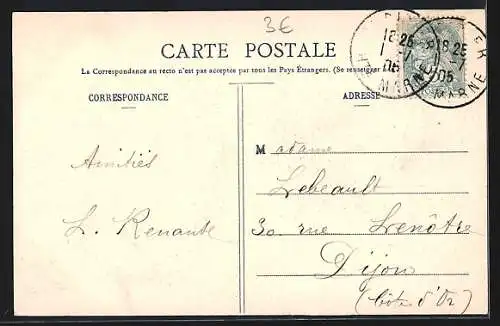 3€
CARTE POSTALE
La Correspondance au recto n'est pas acceptée par tous les Pays Étrangers. (Se renseigner
CORRESPONDANCE
ADRESSE
18-25
18-25
05
05
MARNE
MARNE
Madame
Amitiés
Lebeault
L. Renaute
30 rue Lenôtre
Dijon
(Côte d'Or)